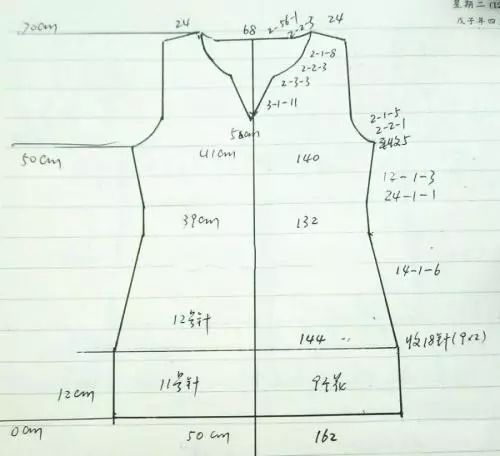 星期二
戊子年四
70cm
24
68
2-56-1
2-2-3
24
2-1-8
2-2-3
2-3-3
3-1-11
50cm
2-1-5
2-2-1
平收5
50cm
41cm
140
12-1-3
24-1-1
39cm
132
14-1-6
12号针
144
收18针(9x2)
12cm
11号针
9个花
0cm
50cm
162